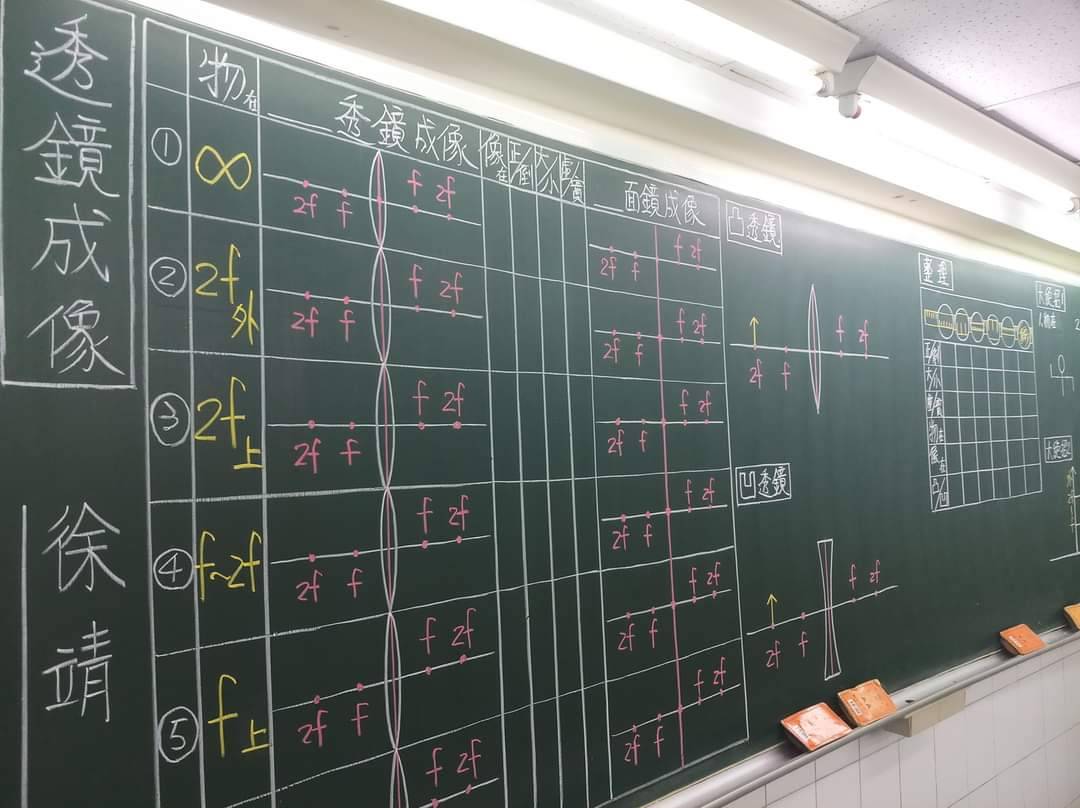 透鏡成像
徐靖
物在
透鏡成像
像在
正倒
大小
虛實
面鏡成像
① ∞
f 2f
2f f
f 2f
2f f
② 2f外
f 2f
2f f
f 2f
2f f
③ 2f上
f 2f
2f f
f 2f
2f f
④ f~2f
f 2f
2f f
f 2f
2f f
⑤ f上
f 2f
2f f
f 2f
2f f
f 2f
2f f
f 2f
凸透鏡
f 2f
2f f
凹透鏡
f 2f
2f f
整理
正倒
大小
虛實
物在
像在
凸凹